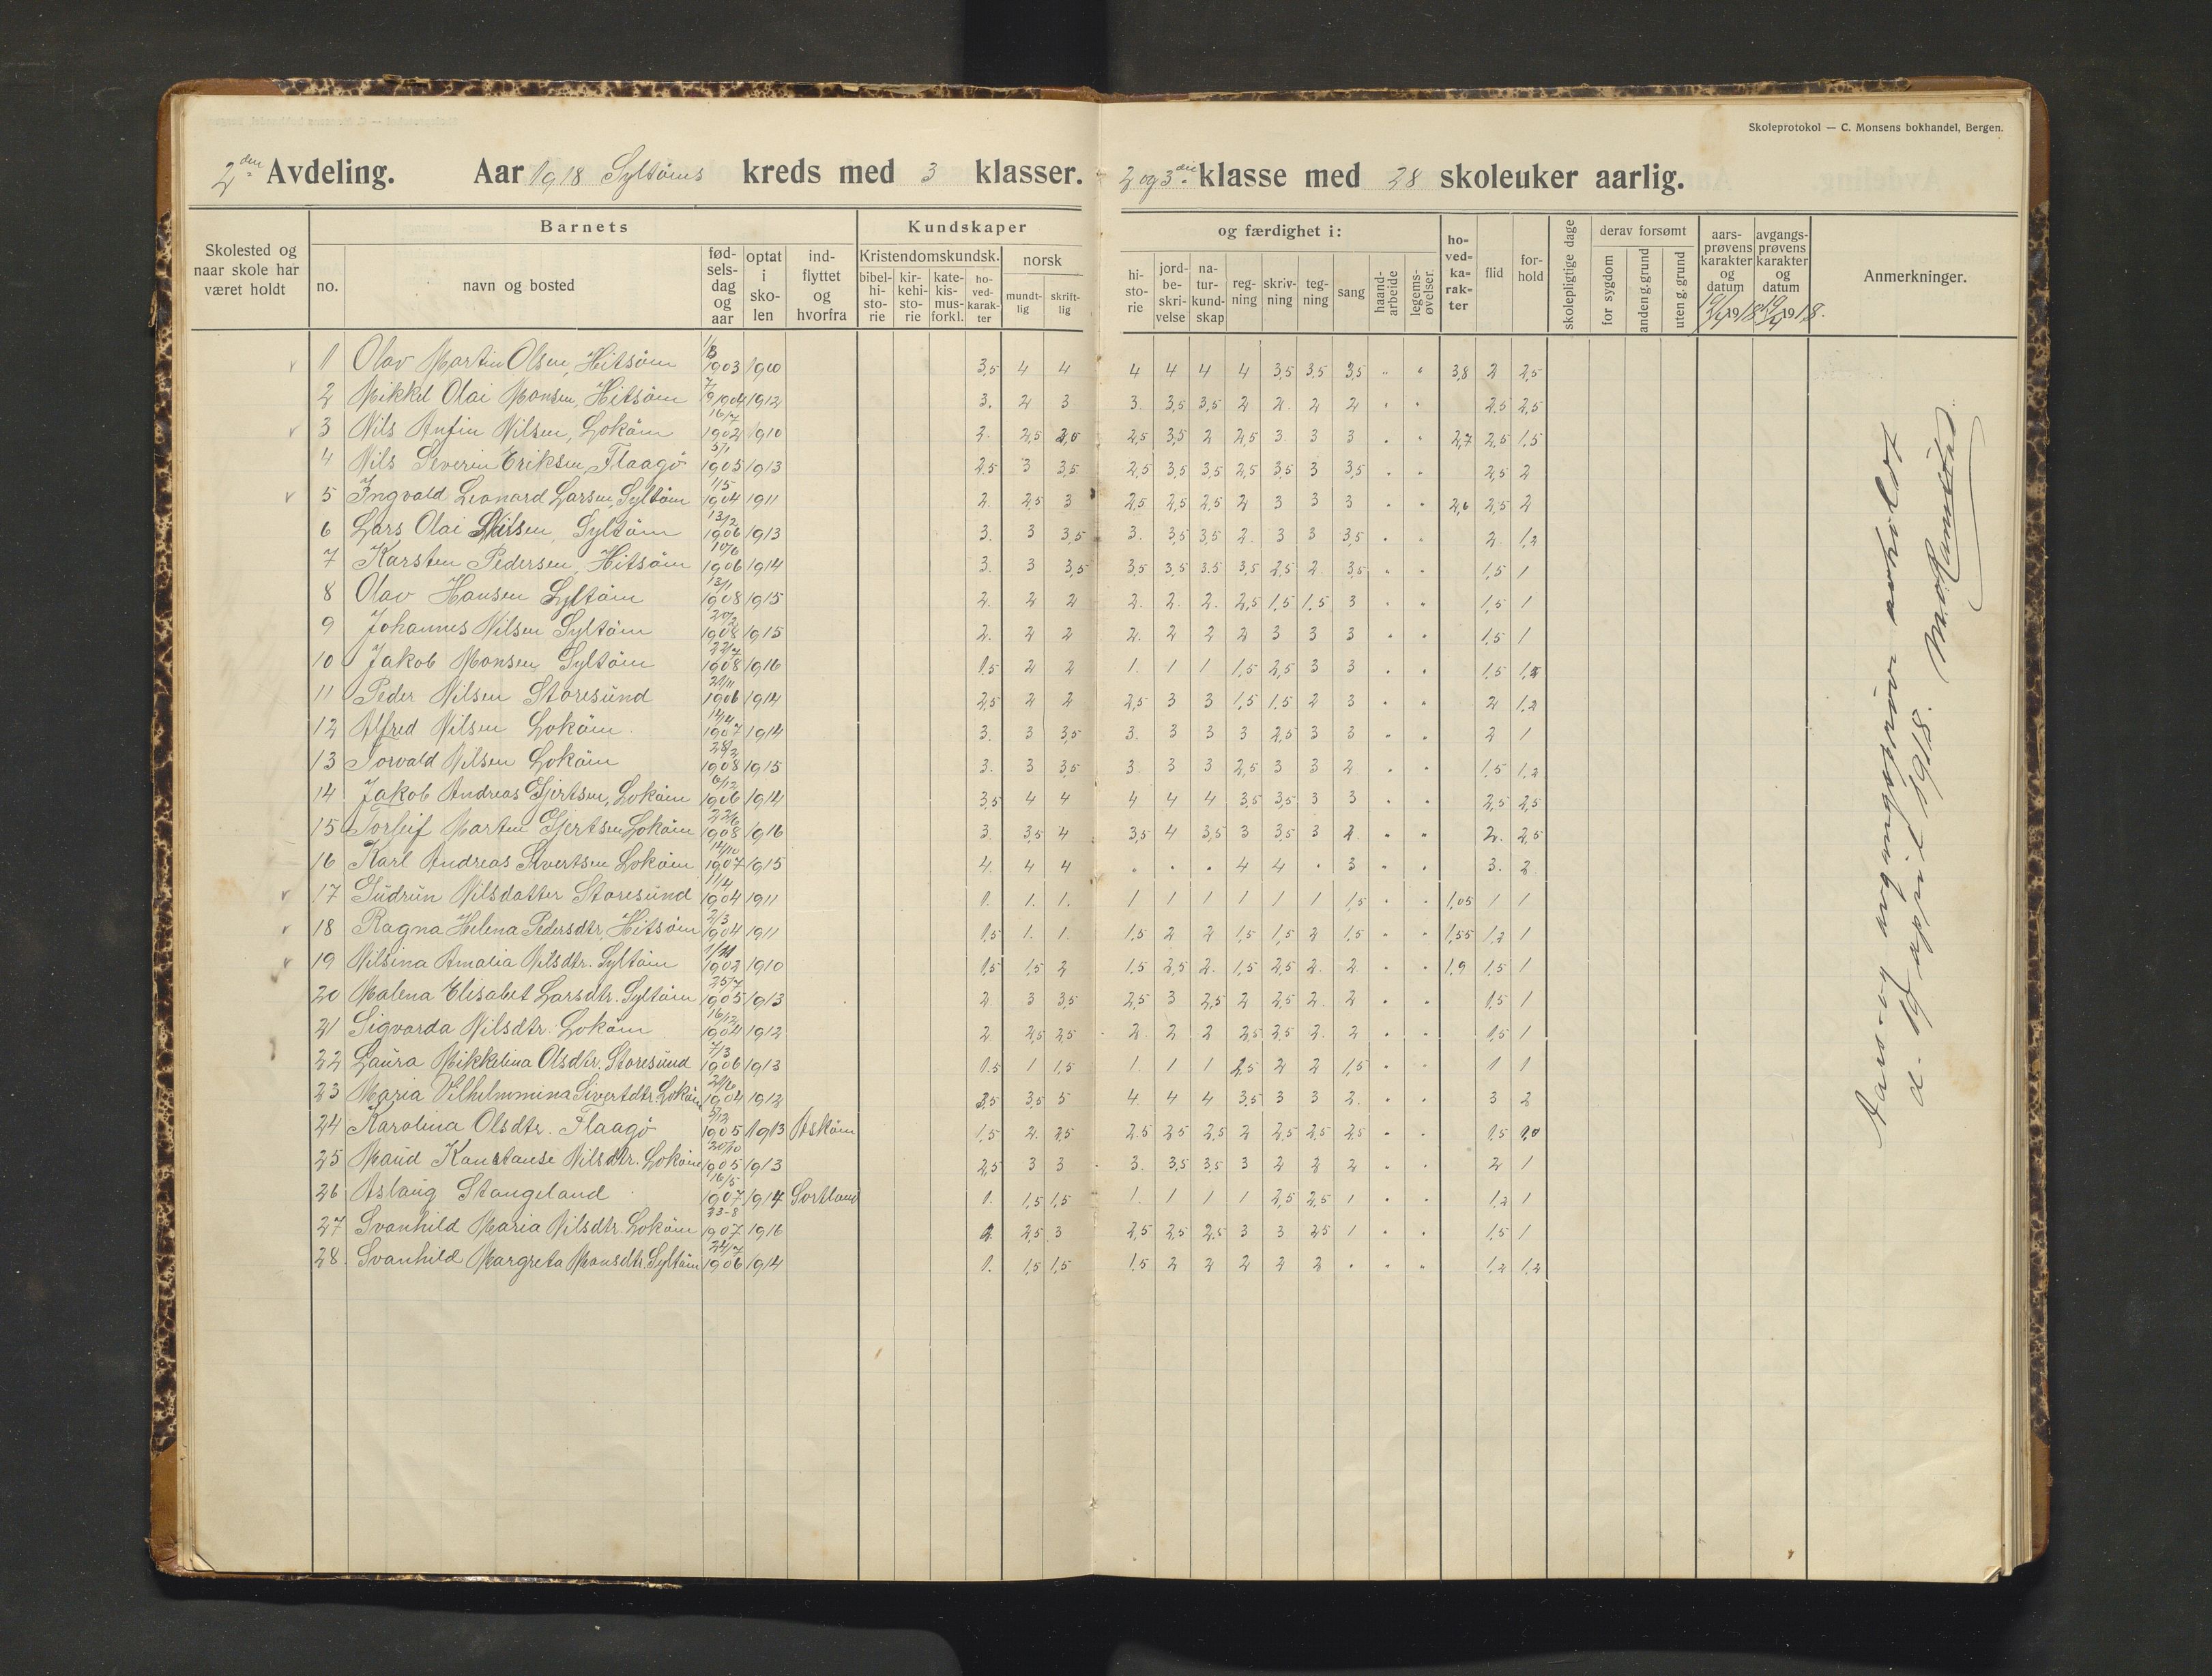 Skoleprotokol — C. Monsens bokhandel, Bergen.
2den Avdeling. Aar 1918 Syltöins kreds med 3 klasser. 2 og 3die klasse med 28 skoleuker aarlig.
Skolested og naar skole har været holdt
Barnets
no. navn og bosted fødselsdag og aar optat i skolen indflyttet og hvorfra
Kundskaper og færdighet i:
Kristendomskundsk. bibelhistorie kirkehistorie katekismusforkl. hovedkarakter
norsk mundtlig skriftlig
historie jordbeskrivelse naturkundskap regning skrivning tegning sang haandarbeide legemsøvelser.
hovedkarakter flid forhold skolepligtige dage
derav forsømt for sygdom anden g. grund uten g. grund
aarsprøvens karakter og datum 19/4 1918
avgangsprøvens karakter og datum 19/4 1918.
Anmerkninger.
1 Olav Martin Olsen, Hitsöin 1903 1910 3,5 4 4 4 4 4 4 3,5 3,5 3,5 " " 3,8 2 2,5
2 Mikkel Olai Monsen, Hitsöin 7/9 1904 1912 3. 2 3 3. 3,5 3,5 2 2. 2 2 " " 2,5 2,5
3 Nils Anfin Nilsen, Loköin 16/7 1902 1910 2. 2,5 2,5 3,5 2 2,5 3 3 3 " " 2,7 2,5 1,5
4 Nils Severin Eriksen, Flaagö 5/1 1905 1913 2.5 3 3,5 2,5 3,5 3,5 2,5 3,5 3 3,5 " " 2,5 2
5 Ingvald Leonard Larsen, Syltöin 1/5 1904 1911 2 2,5 3 2,5 2,5 2,5 2 3 3 3 " " 2,6 2,5 2
6 Lars Olai Nilsen, Syltöin 13/2 1906 1913 3. 3 3,5 3. 3,5 3,5 2. 3 3 3,5 " " 2 1,2
7 Karsten Pedersen, Hitsöin 10/6 1906 1914 3. 3 3,5 3,5 3,5 3.5 3,5 2,5 2 3,5 " " 1,5 1
8 Olav Hansen Syltöin 13/1 1908 1915 2. 2 2 2. 2. 2. 2,5 1,5 1,5 3 " " 1,5 1
9 Johannes Nilsen Syltöin 20/2 1908 1915 2. 2 2 2. 2 2 2 3 3 3 " " 1,5 1
10 Jakob Monsen Syltöin 22/7 1908 1916 1.5 2 2 1. 1 1 1,5 2,5 3 3 " " 1,5 1,2
11 Peder Nilsen Storesund 21/11 1906 1914 2,5 2 2 2,5 3 3 1,5 1.5 2 3 " " 2 1,2
12 Alfred Nilsen Loköin 14/4 1907 1914 3. 3 3,5 3. 3 3 3 2,5 3 3 " " 2 1
13 Torvald Nilsen Loköin 28/2 1908 1915 3. 3 3,5 3. 3 3 2,5 3 3 2 " " 1,5 1,2
14 Jakob Andreas Gjertsen, Loköin 6/12 1906 1914 3,5 4 4 4 4 4 3,5 3,5 3 3 " " 2,5 2,5
15 Torleif Marten Gjertsen Loköin 22/6 1908 1916 3. 3,5 4 3,5 4 3,5 3 3,5 3 2 " " 2. 2,5
16 Karl Andreas Sivertsen Loköin 14/10 1907 1915 4. 4 4 " " " 4 4 " 3 " " 3. 2
17 Gudrun Nilsdatter Storesund 11/4 1904 1911 1. 1. 1. 1 1 1 1 1 1 1,5 " " 1,05 1 1
18 Ragna Helena Pedersdtr, Hitsöin 2/3 1904 1911 1,5 1. 1. 1.5 2 2 1,5 1,5 2 1,5 " " 1,55 1,2 1
19 Nilsina Amalia Nilsdtr. Syltöin 1902 1910 1,5 1,5 2 1.5 2,5 2. 1,5 2,5 2. 2. " " 1,9 1,5 1
20 Malena Elisabet Larsdtr. Syltöin 25/7 1905 1913 2. 3 3,5 2,5 3 2,5 2 2,5 2. 2 " " 1,5 1
21 Sigvarda Nilsdtr. Loköin 16/12 1904 1912 2 2,5 2,5 2 2 2 2,5 2,5 2. 2 " " 1,5 1
22 Laura Mikkelina Olsdtr. Storesund 7/3 1906 1913 1.5 1 1,5 1. 1 1 1,5 2 2 1,5 " " 1 1
23 Maria Vilhelmmina Sivertdtr. Loköin 21/6 1904 1912 3,5 3,5 5 4. 4 4 3,5 3 3 2. " " 3 2
24 Karolina Olsdtr. Flaagö 5/12 1905 1913 Asköin 1,5 2. 2,5 2.5 2,5 2,5 2 2,5 2,5 2,5 " " 1,5 1,0
25 Maud Konstanse Nilsdtr. Loköin 20/10 1905 1913 2,5 3 3 3. 3,5 3,5 3 2 2 2 " " 2 1
26 Aslaug Stangeland 16/5 1907 1914 Sortland 1. 1,5 1,5 1. 1 1 1 2,5 2,5 1 " " 1,2 1
27 Svanhild Maria Nilsdtr. Loköin 23-8 1907 1916 2 2,5 3 2,5 2,5 2,5 3 3 2,5 1 " " 1,5 1
28. Svanhild Margreta Monsdtr. Syltöin 24/7 1906 1914 1. 1,5 1,5 1.5 2 2 2 2 2 " " " 1,2 1,2
Aars- og avgangsprøve avholdt
d. 19 april 1918.